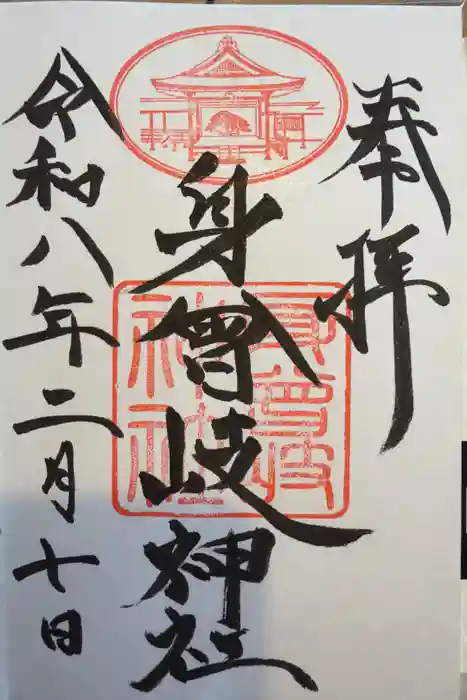 奉拝
身曾岐神社
身曾岐神社
令和八年二月十日